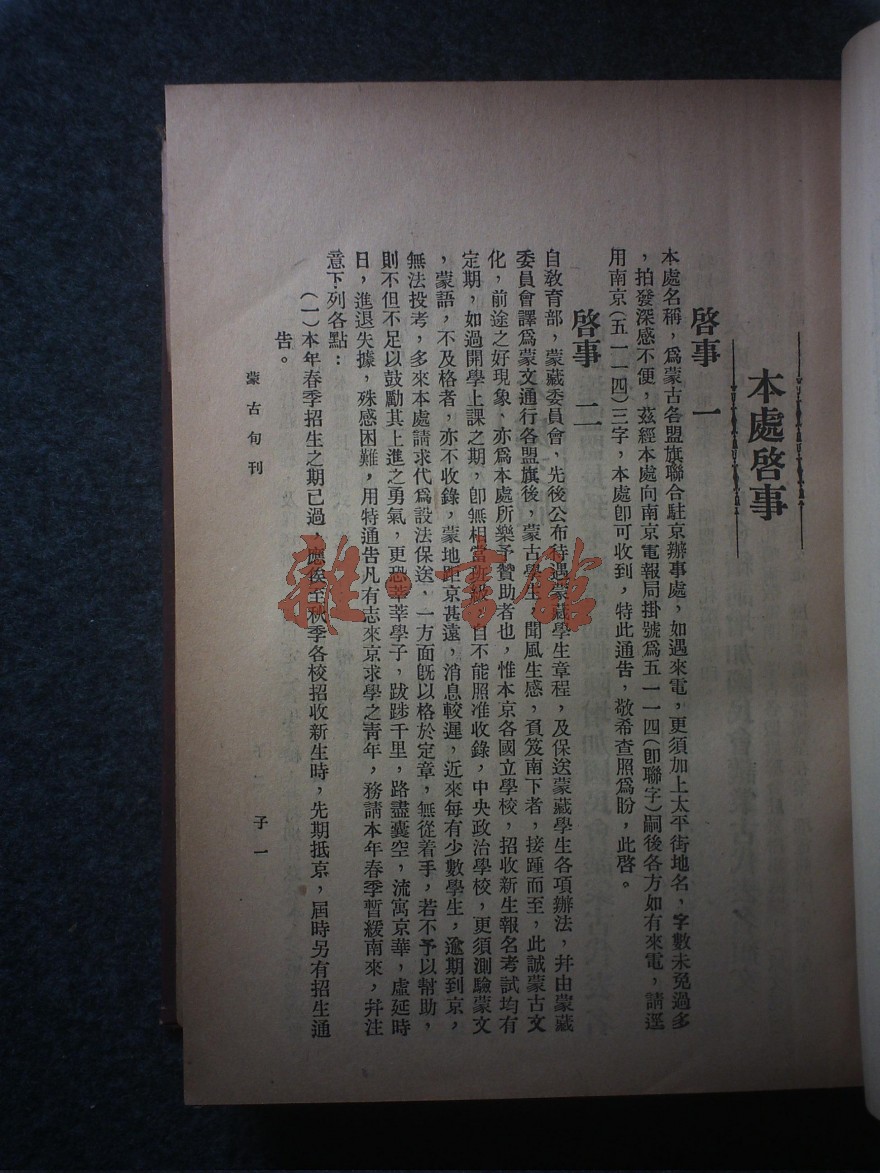 本處啓事
啓事一
本處名稱，爲蒙古各盟旗聯合駐京辦事處，如遇來電，更須加上太平街地名，字數未免過多
，拍發深感不便，茲經本處向南京電報局掛號爲五一一四（卽聯字）嗣後各方如有來電，請逕
用南京（五一一四）三字，本處卽可收到，特此通告，敬希查照爲盼，此啓。
啓事二
自敎育部，蒙藏委員會，先後公布待遇蒙藏學生章程，及保送蒙藏學生各項辦法，幷由蒙藏
委員會譯爲蒙文通行各盟旗後，蒙古學生，聞風生感，負笈南下者，接踵而至，此誠蒙古文
化，前途之好現象，亦爲本處所樂予贊助者也，惟本京各國立學校，招收新生報名考試均有
定期，如過開學上課之期，卽無相當班級，自不能照准收錄，中央政治學校，更須測驗蒙文
，蒙語，不及格者，亦不收錄，蒙地距京甚遠，消息較遲，近來每有少數學生，逾期到京，
無法投考，多來本處請求代爲設法保送，一方面旣以格於定章，無從着手，若不予以幫助，
則不但不足以鼓勵其上進之勇氣，更恐莘莘學子，跋踄千里，路盡囊空，流寓京華，虛延時
日，進退失據，殊感困難，用特通告凡有志來京求學之靑年，務請本年春季暫緩南來，幷注
意下列各點：
（一）本年春季招生之期已過，應俟至秋季各校招收新生時，先期抵京，屆時另有招生通
告。
蒙古旬刊
子一
雜·書館